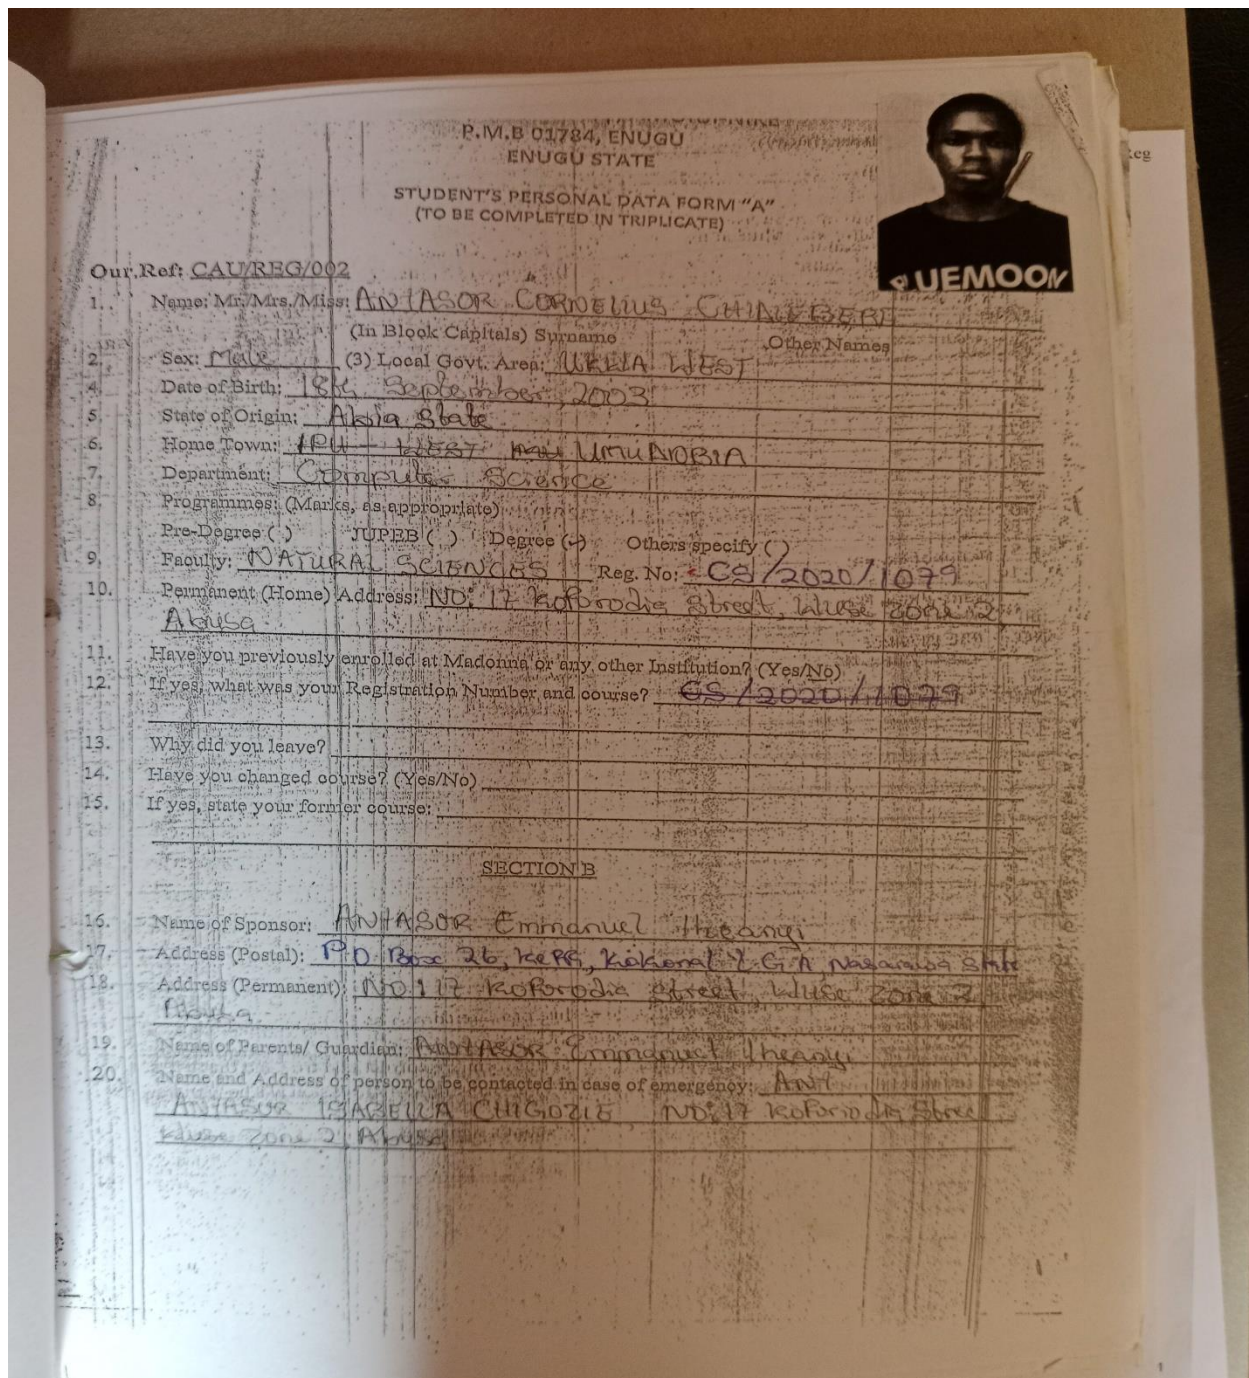 P.M.B 01784, ENUGU
ENUGU STATE
STUDENT'S PERSONAL DATA FORM "A"
(TO BE COMPLETED IN TRIPLICATE)
UEMOON
Our Ref: CAU/REG/002
1. Name: Mr./Mrs./Miss: ANIASOR CORNELIUS
(In Block Capitals) Surname Other Names
2. Sex: Male (3) Local Govt. Area: UKWA WEST
4. Date of Birth: 18th September, 2003
5. State of Origin: Abia State
6. Home Town: WEST UMU
7. Department: Computer Science
8. Programmes: (Marks, as appropriate)
Pre-Degree ( ) JUPEB ( ) Degree (✓) Others specify ( )
9. Faculty: NATURAL SCIENCES Reg. No: CS/2020/1079
10. Permanent (Home) Address: NO: 17 Koforodia Street, Wuse Zone 2,
Abuja
11. Have you previously enrolled at Madonna or any other Institution? (Yes/No)
12. If yes, what was your Registration Number and course? CS/2020/1079
13. Why did you leave?
14. Have you changed course? (Yes/No)
15. If yes, state your former course:
SECTION B
16. Name of Sponsor: ANIASOR Emmanuel Ifeanyi
17. Address (Postal): P.O. Box 26, Keffi, L.G.A, Nasarawa State
18. Address (Permanent): NO: 17 Koforodia Street, Wuse Zone 2,
Abuja
19. Name of Parents/ Guardian: ANIASOR Emmanuel Ifeanyi
20. Name and Address of person to be contacted in case of emergency: ANI
ANIASOR ISABELLA CHIGOZIE, NO: 17 Koforodia Stree
Wuse Zone 2, Abuja
1